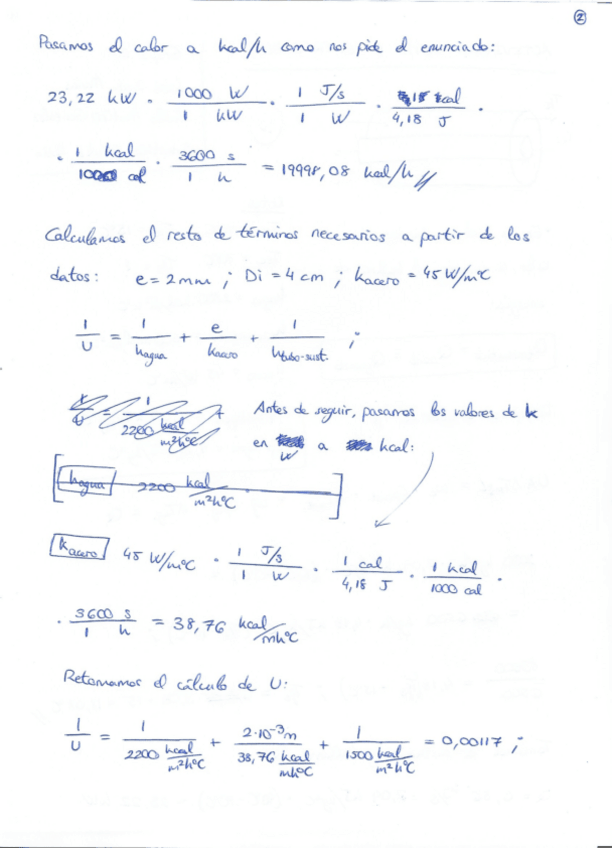 ②
Pasamos el calor a kcal/h como nos pide el enunciado:
23,22 kW · 1000 W / 1 kW · 1 J/s / 1 W · 1 cal / 4,18 J ·
· 1 kcal / 1000 cal · 3600 s / 1 h = 19998,08 kcal/h //
Calculamos el resto de términos necesarios a partir de los
datos: e = 2 mm ; Di = 4 cm ; kacero = 45 W/mºC
1/U = 1/hagua + e/kacero + 1/htubo-sust. ;
Antes de seguir, pasamos los valores de k
en W a kcal:
1/U = 1 / 2200 kcal/m²hºC +
[ hagua 2200 kcal/m²hºC · ]
kacero 45 W/mºC · 1 J/s / 1 W · 1 cal / 4,18 J · 1 kcal / 1000 cal ·
· 3600 s / 1 h = 38,76 kcal/mhºC
Retomamos el cálculo de U:
1/U = 1 / 2200 kcal/m²hºC + 2·10⁻³m / 38,76 kcal/mhºC + 1 / 1500 kcal/m²hºC = 0,00117 ;